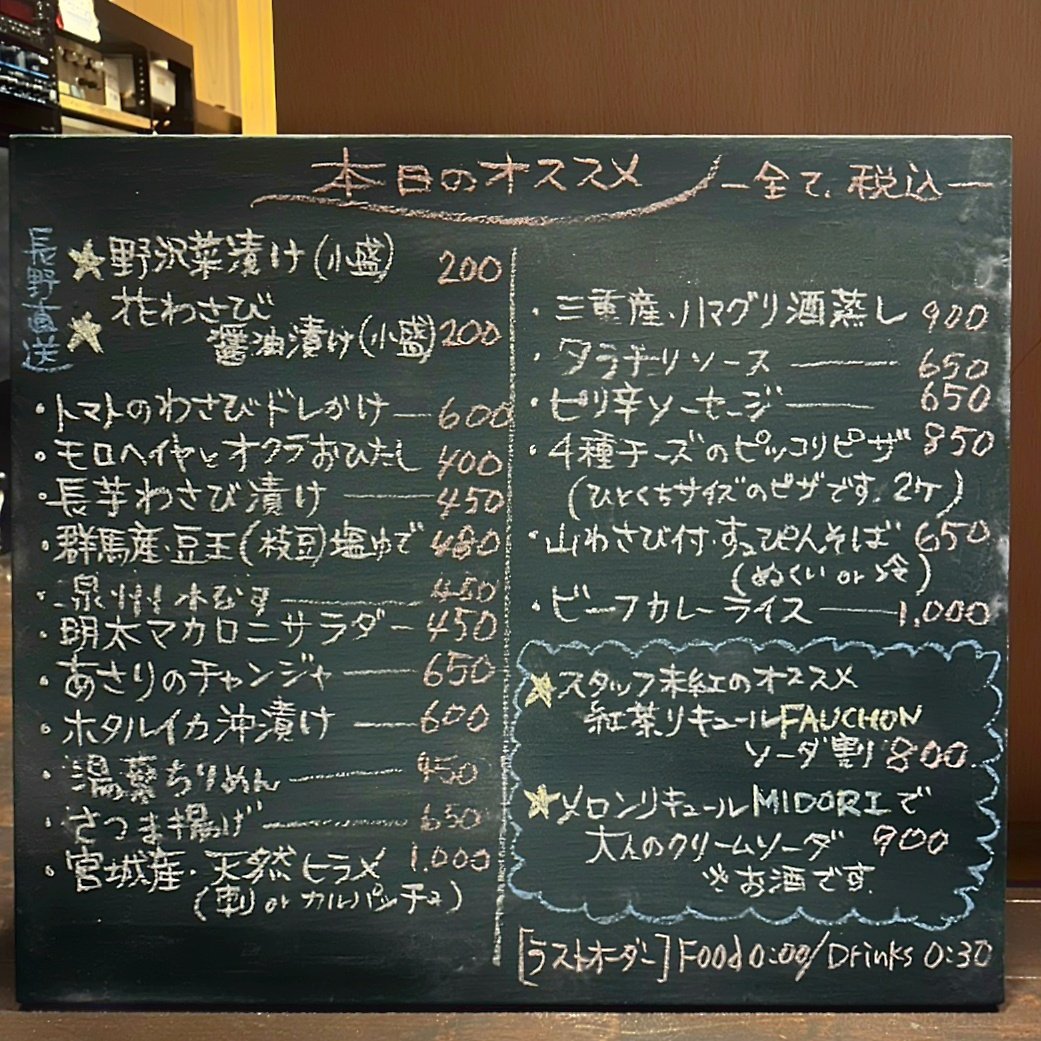 本日のオススメ
ー全て税込ー
長野直送
★野沢菜漬け(小盛) 200
★花わさび
醤油漬け(小盛) 200
・トマトのわさびドレかけ ー 600
・モロヘイヤとオクラおひたし 400
・長芋わさび漬け ー 450
・群馬産・豆王(枝豆)塩ゆで 480
・泉州水なす ー 450
・明太マカロニサラダー 450
・あさりのチャンジャ ー 650
・ホタルイカ沖漬け ー 600
・湯葉ちりめん ー 450
・さつま揚げ ー 650
・宮城産・天然ヒラメ 1,000
(刺 or カルパッチョ)
・三重産・ハマグリ酒蒸し 900
・タラチリソース ー 650
・ピリ辛ソーセージ ー 650
・4種チーズのピッコリピザ 850
(ひとくちサイズのピザです。2ケ)
・山わさび付・すっぴんそば 650
(ぬくい or 冷)
・ビーフカレーライス ー 1,000
★スタッフ未紅のオススメ
紅茶リキュールFAUCHON
ソーダ割り 800
★メロンリキュールMIDORIで
大人のクリームソーダ 900
※お酒です
[ラストオーダー] Food 0:00/Drinks 0:30